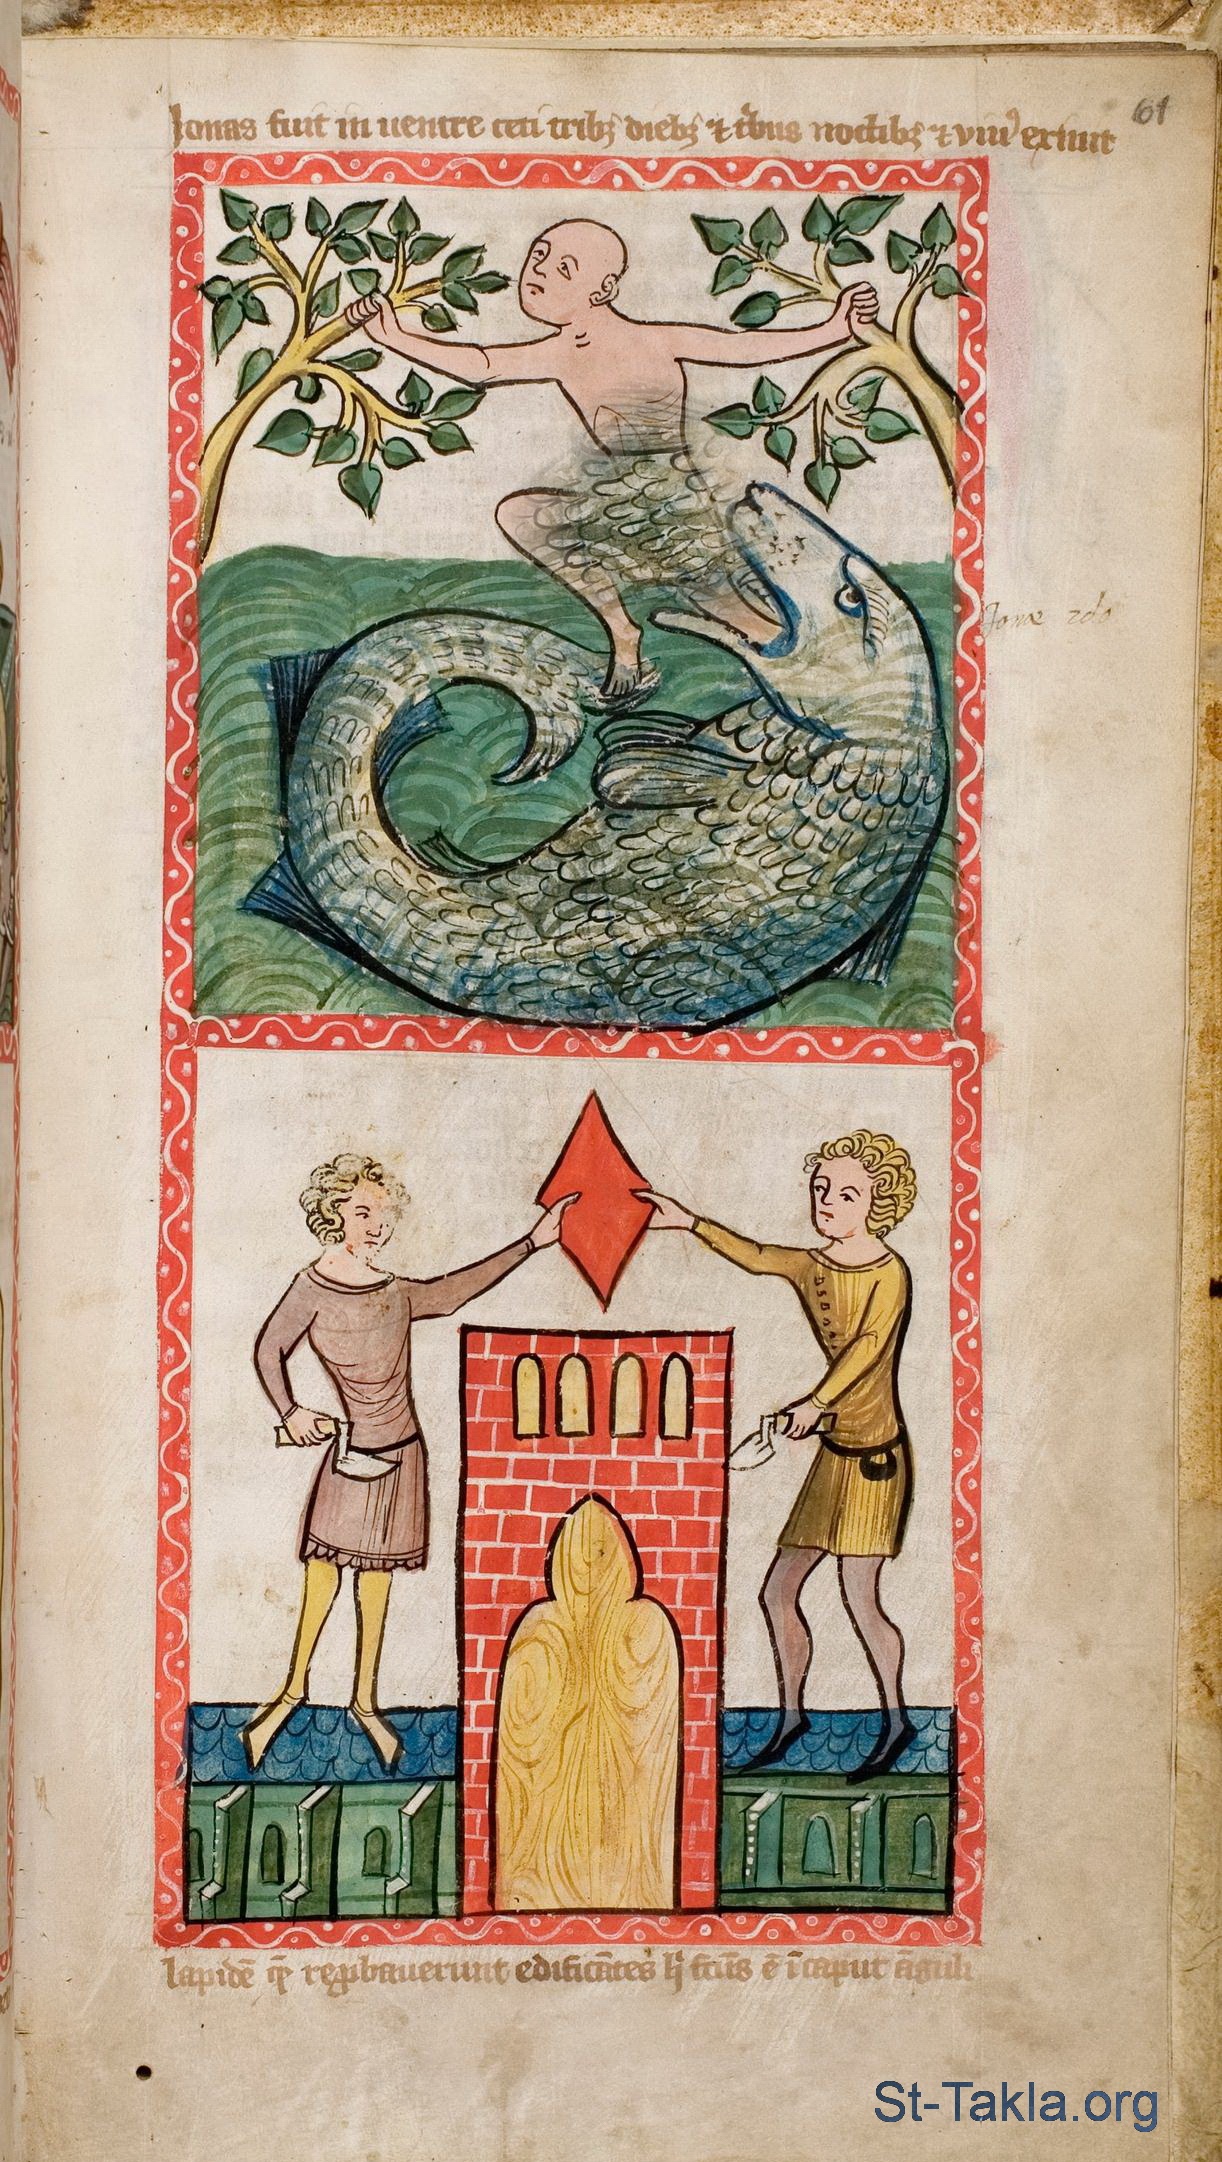 61
Jonas fuit in uentre ceti tribꝫ diebꝫ ⁊ tͥbus noctibꝫ ⁊ viuꝰ exiuit
Jonæ 2do
lapidē qͣ̄ repͬbauerunt edificātes hͥ fcūs ē ī caput āguli
St-Takla.org